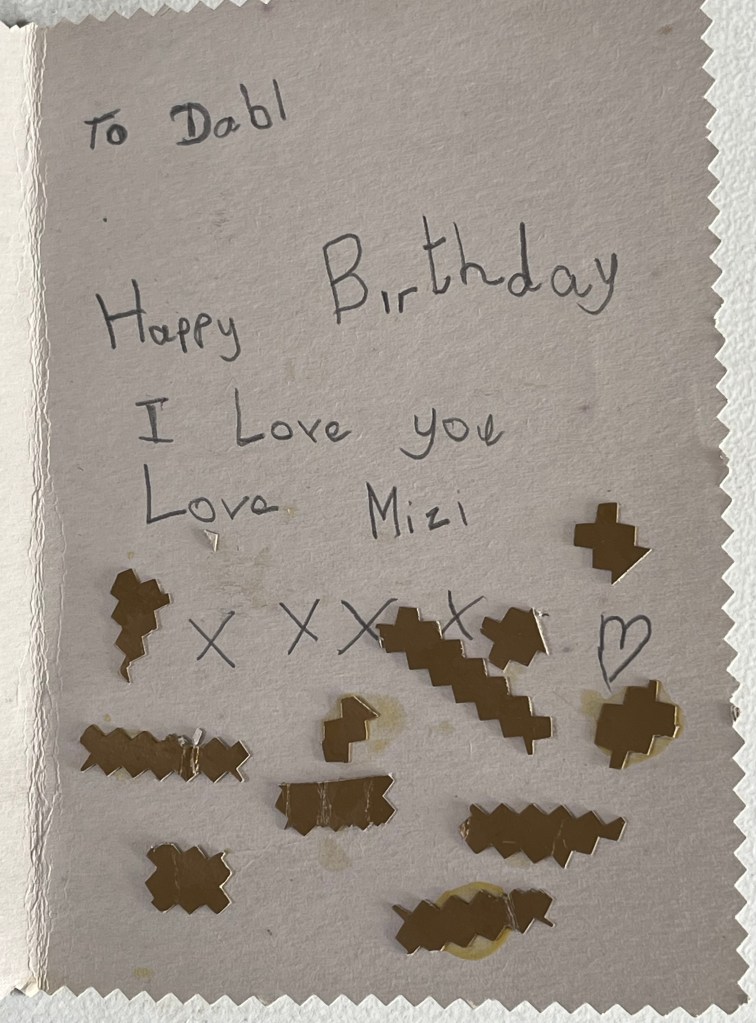 To Dabl
Happy Birthday
I Love you
Love Mizi
X X X X ♡